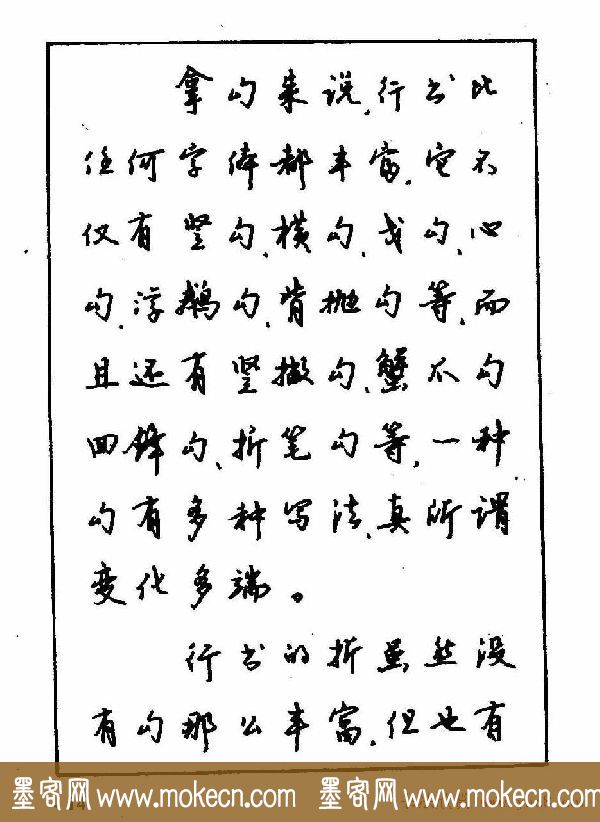 拿勾来说,行书比
任何字体都丰富,它不
仅有竖勾、横勾、戈勾、心
勾、浮鹅勾、背抛勾等,而
且还有竖撇勾、蟹爪勾
回锋勾、折笔勾等,一种
勾有多种写法,真所谓
变化多端。
行书的折虽然没
有勾那么丰富,但也有
墨客网 www.mokecn.com 墨客网 www.mokecn.com